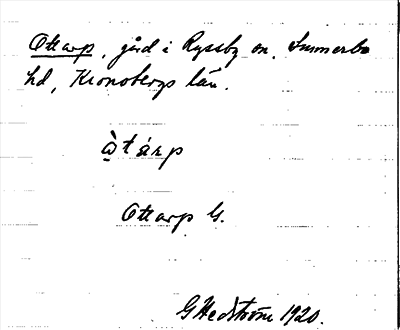 Ottarp, gård i Ryssby sn, Sunnerbo
hd, Kronobergs län.
ò̩tárp
Ottarp G.
G Hedström 1920.